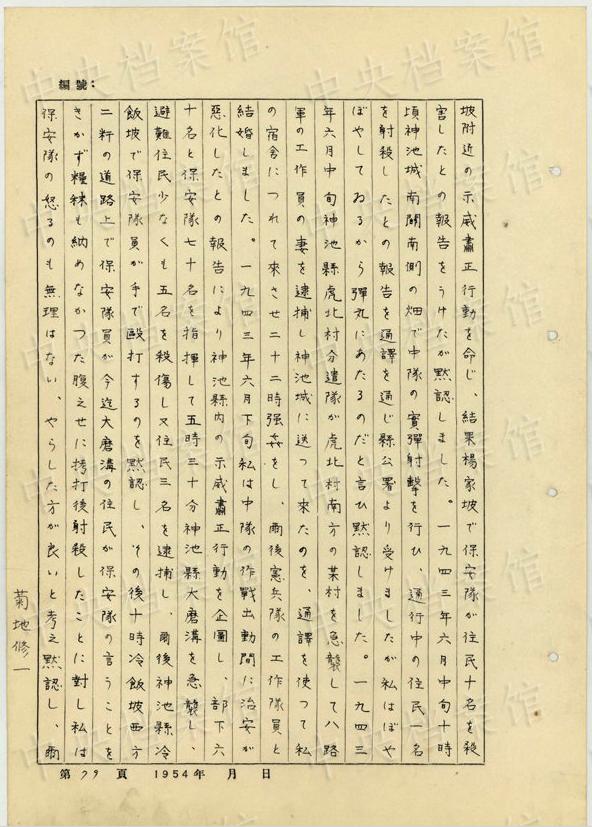 編號：
坡附近の示威肅正行動を命じ、結果楊家坡で保安隊が住民十名を殺
害したとの報告をうけたが黙認しました。一九四三年六月中旬十時
頃神池城南関南側の畑で中隊の實彈射撃を行ひ、通行中の住民一名
を射殺したとの報告を通譯を通じ縣公署より受けましたが私はぼや
ぼやしてゐるから彈丸にあたるのだと言ひ黙認しました。一九四三
年六月中旬神池縣虎北村分遣隊が虎北村南方の某村を急襲して八路
軍の工作員の妻を逮捕し神池城に送つて来たのを、通譯を使つて私
の宿舎につれて来させ二十二時強姦をし、爾後憲兵隊の工作隊員と
結婚しました。一九四三年六月下旬私は中隊の作戰出動間に治安が
惡化したとの報告により神池縣内の示威肅正行動を企圖し、部下六
十名と保安隊七十名を指揮して五時三十分神池縣大磨溝を急襲し、
避難住民少なくも五名を殺傷し又住民三名を逮捕し、爾後神池縣冷
飯坡で保安隊員が手で毆打するのを黙認し、その後十時冷飯坡西方
二粁の道路上で保安隊員が今迄大磨溝の住民が保安隊の言うことを
きかず糧秣も納めなかつた腹えせに拷打後射殺したことに対し私は
保安隊の怒るのも無理はない、やらした方が良いと考え黙認し、爾
菊地修一
第79頁 1954年 月 日
中央档案馆